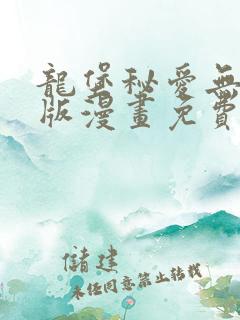 龍堡秘愛無
版漫畫免費
儲建
未经同意禁止转载